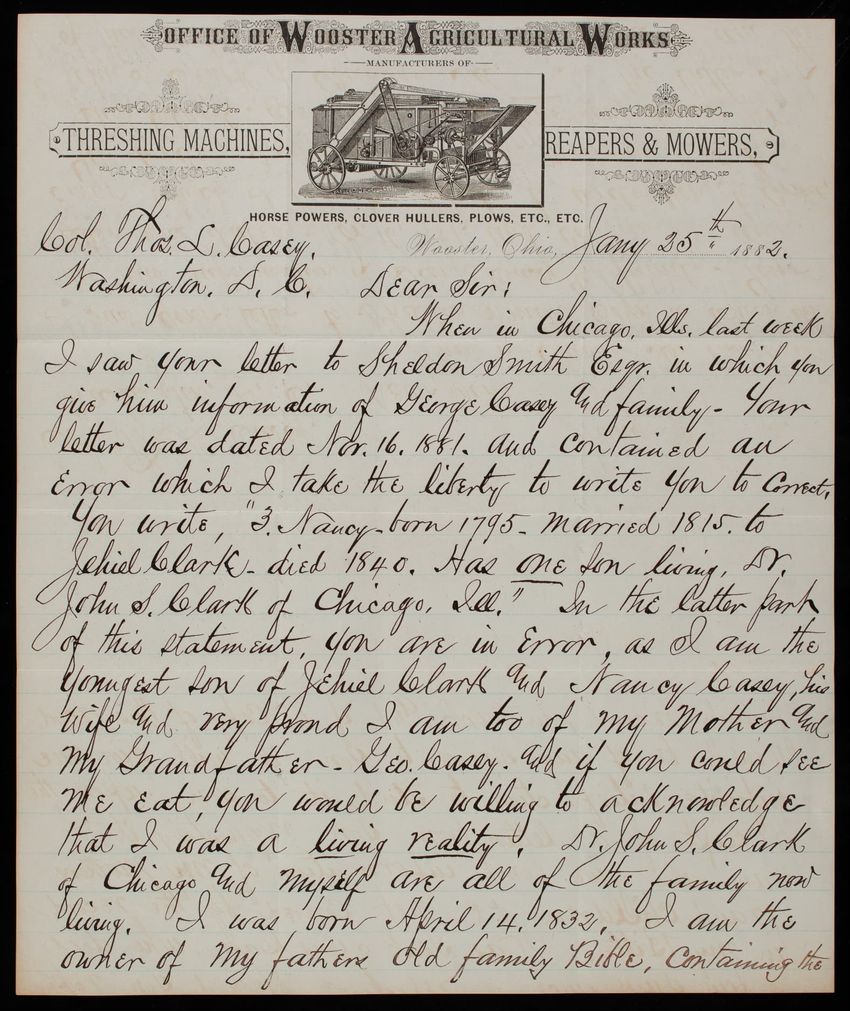 OFFICE OF WOOSTER AGRICULTURAL WORKS
MANUFACTURERS OF
THRESHING MACHINES, REAPERS & MOWERS,
HORSE POWERS, CLOVER HULLERS, PLOWS, ETC., ETC.
Wooster, Ohio, Jany 25th 1882.
Col. Thos. L. Casey.
Washington. D. C. Dear Sir:
When in Chicago, Ills. last week
I saw your letter to Sheldon Smith Esqr. in which you
give him information of George Casey and family - Your
letter was dated Nov. 16. 1881. and contained an
Error which I take the liberty to write you to correct.
You write, "3. Nancy - born 1795 - married 1815. to
Jehiel Clark - died 1840. Has one son living, Dr.
John S. Clark of Chicago, Ill." In the latter part
of this statement, you are in Error, as I am the
youngest son of Jehiel Clark and Nancy Casey, his
wife and very proud I am too of my Mother and
my Grandfather - Geo. Casey. and if you could see
me eat, you would be willing to acknowledge
that I was a living reality. Dr. John S. Clark
of Chicago and myself are all of the family now
living. I was born April 14. 1832. I am the
owner of my fathers old family Bible, containing the